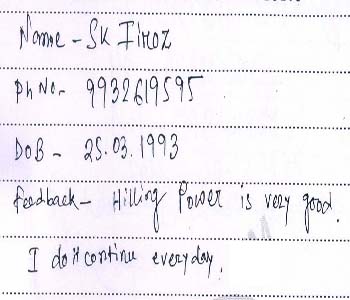 Name - SK Firoz
Ph No - 9932619595
DOB - 25.03.1993
Feedback - Hilling Power is very good.
I do it continue everyday.